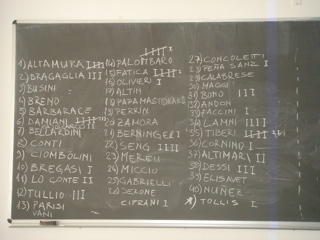 1) ALTAMURA
2) BRAGAGLIA III
3) BUSINI
4) BRENO
5) BARBARACE
6) DAMIANI
7) BELLARDINI
8) CONTI
9) CIOMBOLINI
10) BREGASI I
11) LO CONTE II
12) TULLIO III
13) PARISI
VANI
14) PALOMBARO
15) FATICA
16) OLIVERI I
17) ALTIN
18)
19) PERRIN
20) ZAMORA
21) BERNINGER I
22) SENG IIII
23) MEREU
24) MICCIO
25) GABRIELLI
26) SERONE
CIPRANI I
27) CONCOLETTI
28) PEÑA SANZ I
29) CALABRESE
30) MAGGI
31) BONO III
32) ANDON
33) FACCINI I
34) LAMNI IIII
35) TIBERI
36) CORNINO I
37) ALTIMARI II
38) DESSI III
39) ELISAVET
40) NUÑEZ
TOLLIS I